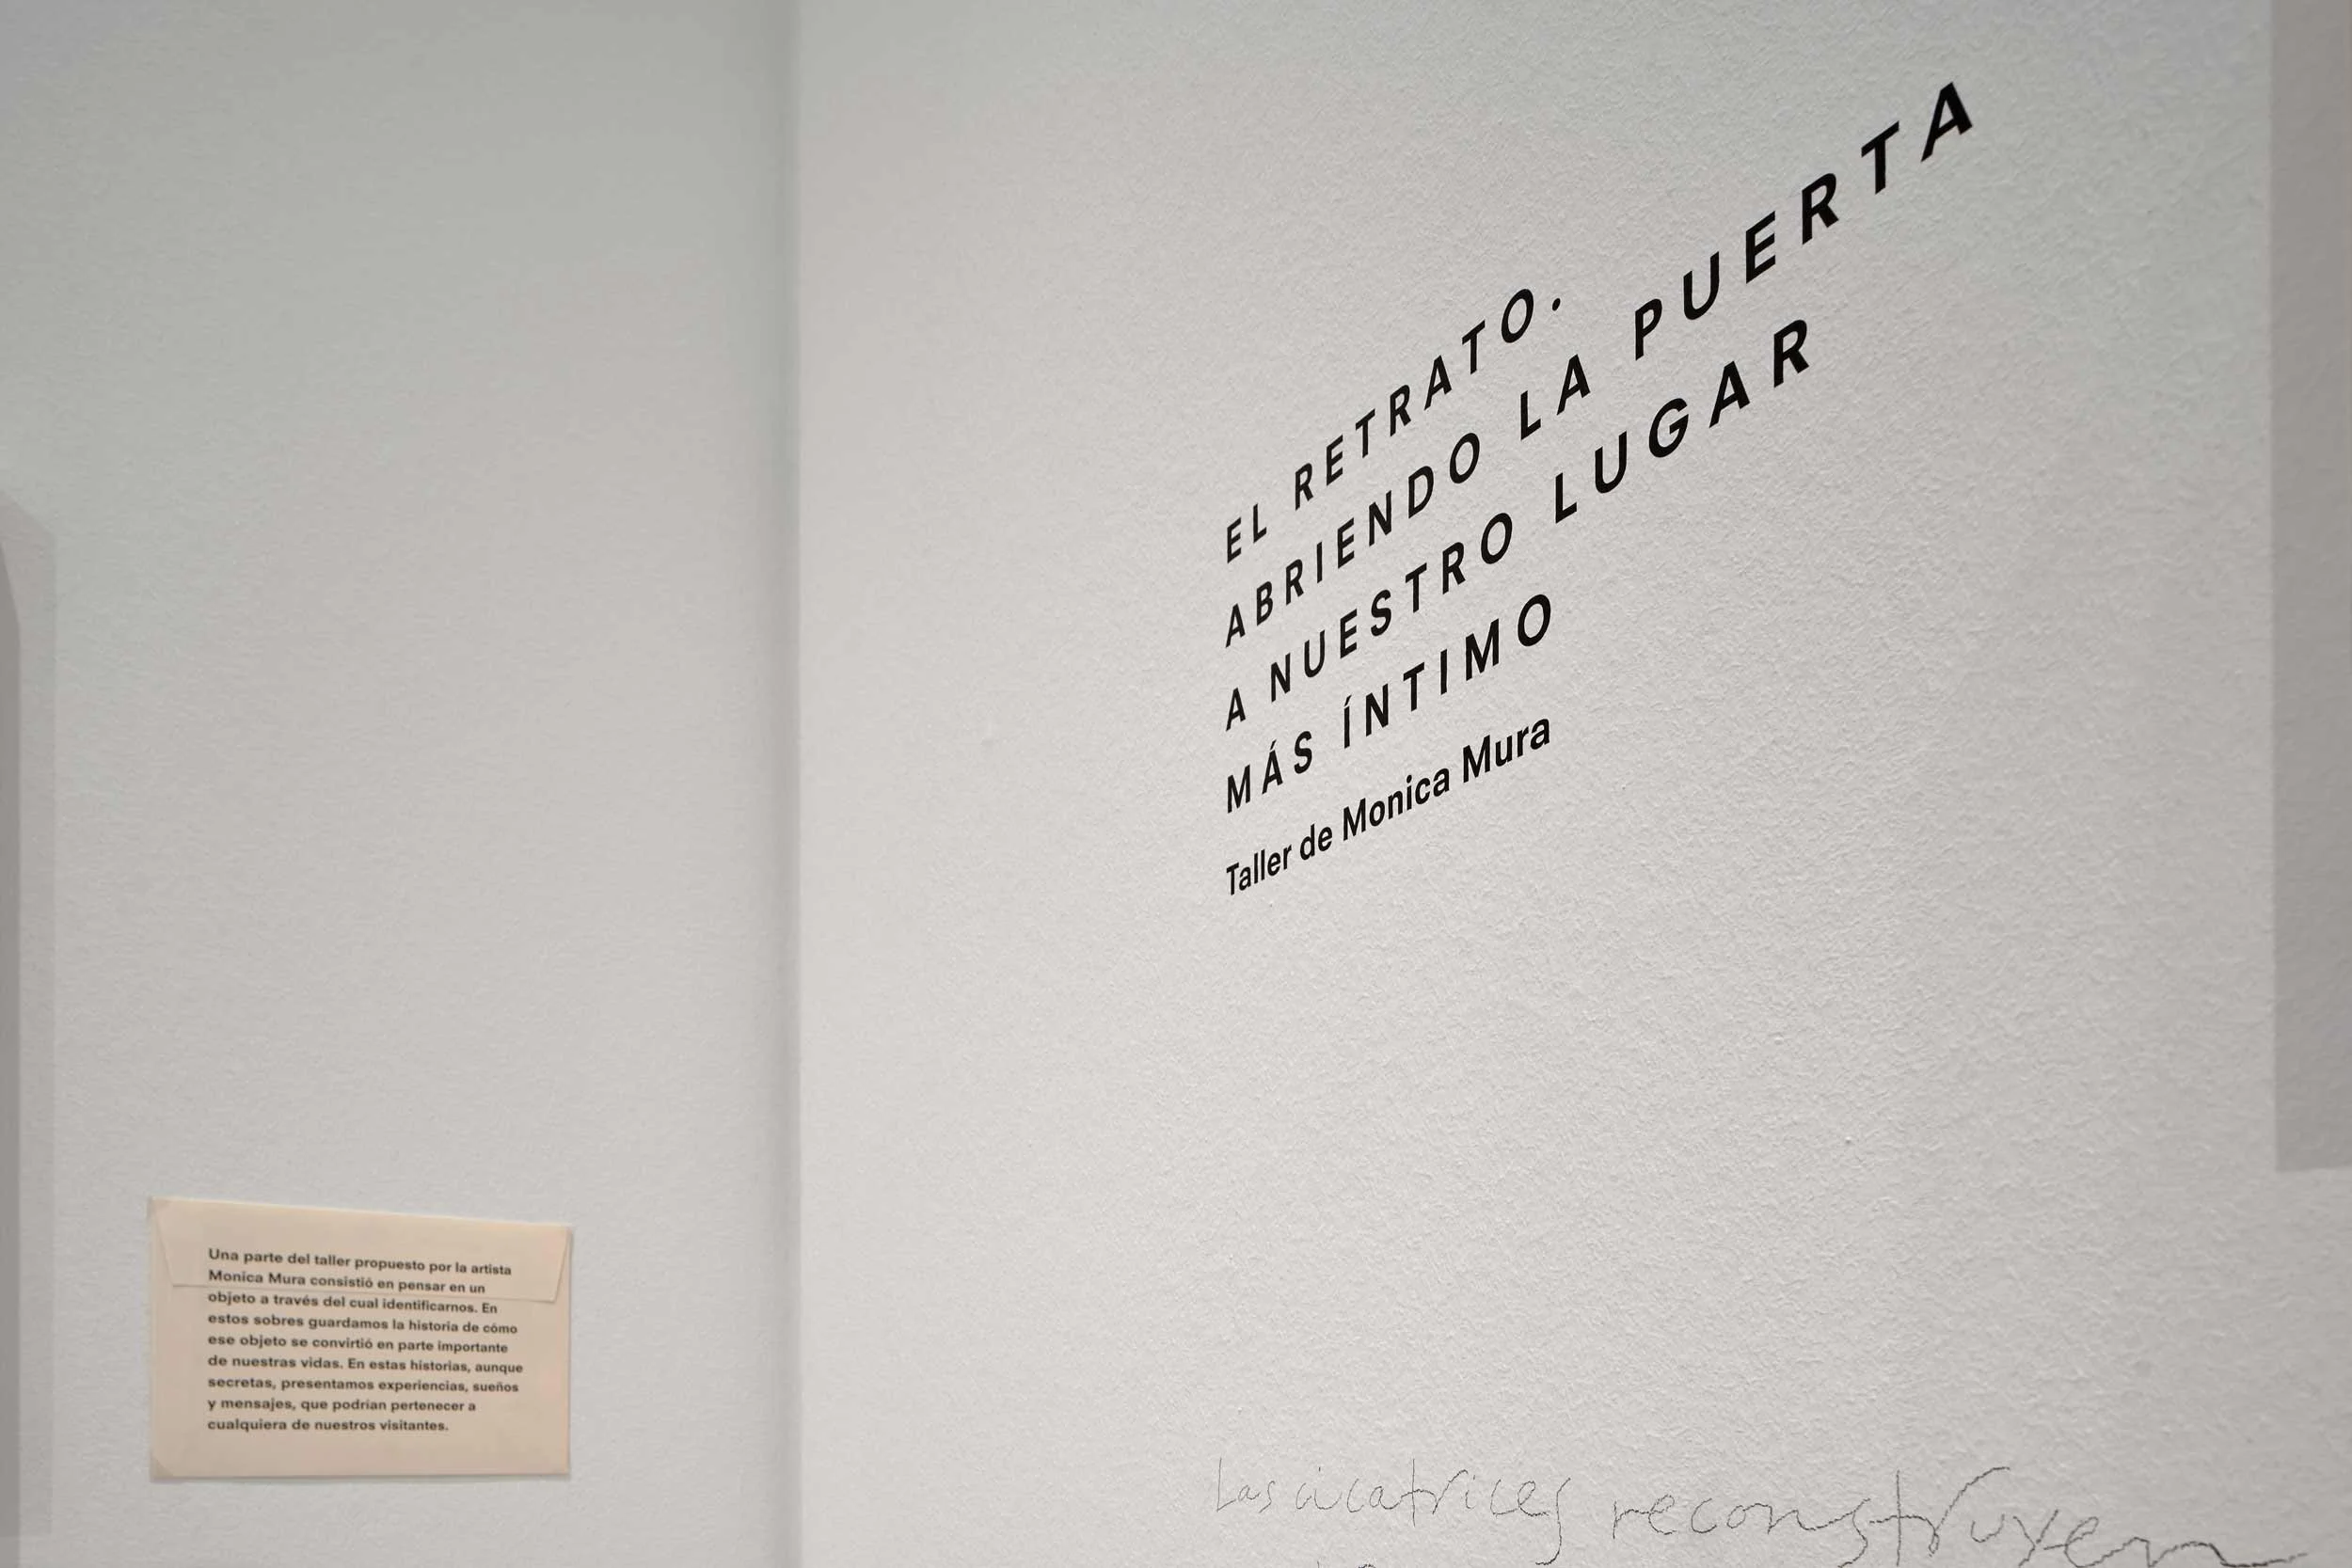 EL RETRATO.
ABRIENDO LA PUERTA
A NUESTRO LUGAR
MÁS ÍNTIMO
Taller de Monica Mura
Una parte del taller propuesto por la artista
Monica Mura consistió en pensar en un
objeto a través del cual identificarnos. En
estos sobres guardamos la historia de cómo
ese objeto se convirtió en parte importante
de nuestras vidas. En estas historias, aunque
secretas, presentamos experiencias, sueños
y mensajes, que podrían pertenecer a
cualquiera de nuestros visitantes.
Las cicatrices reconstruyen